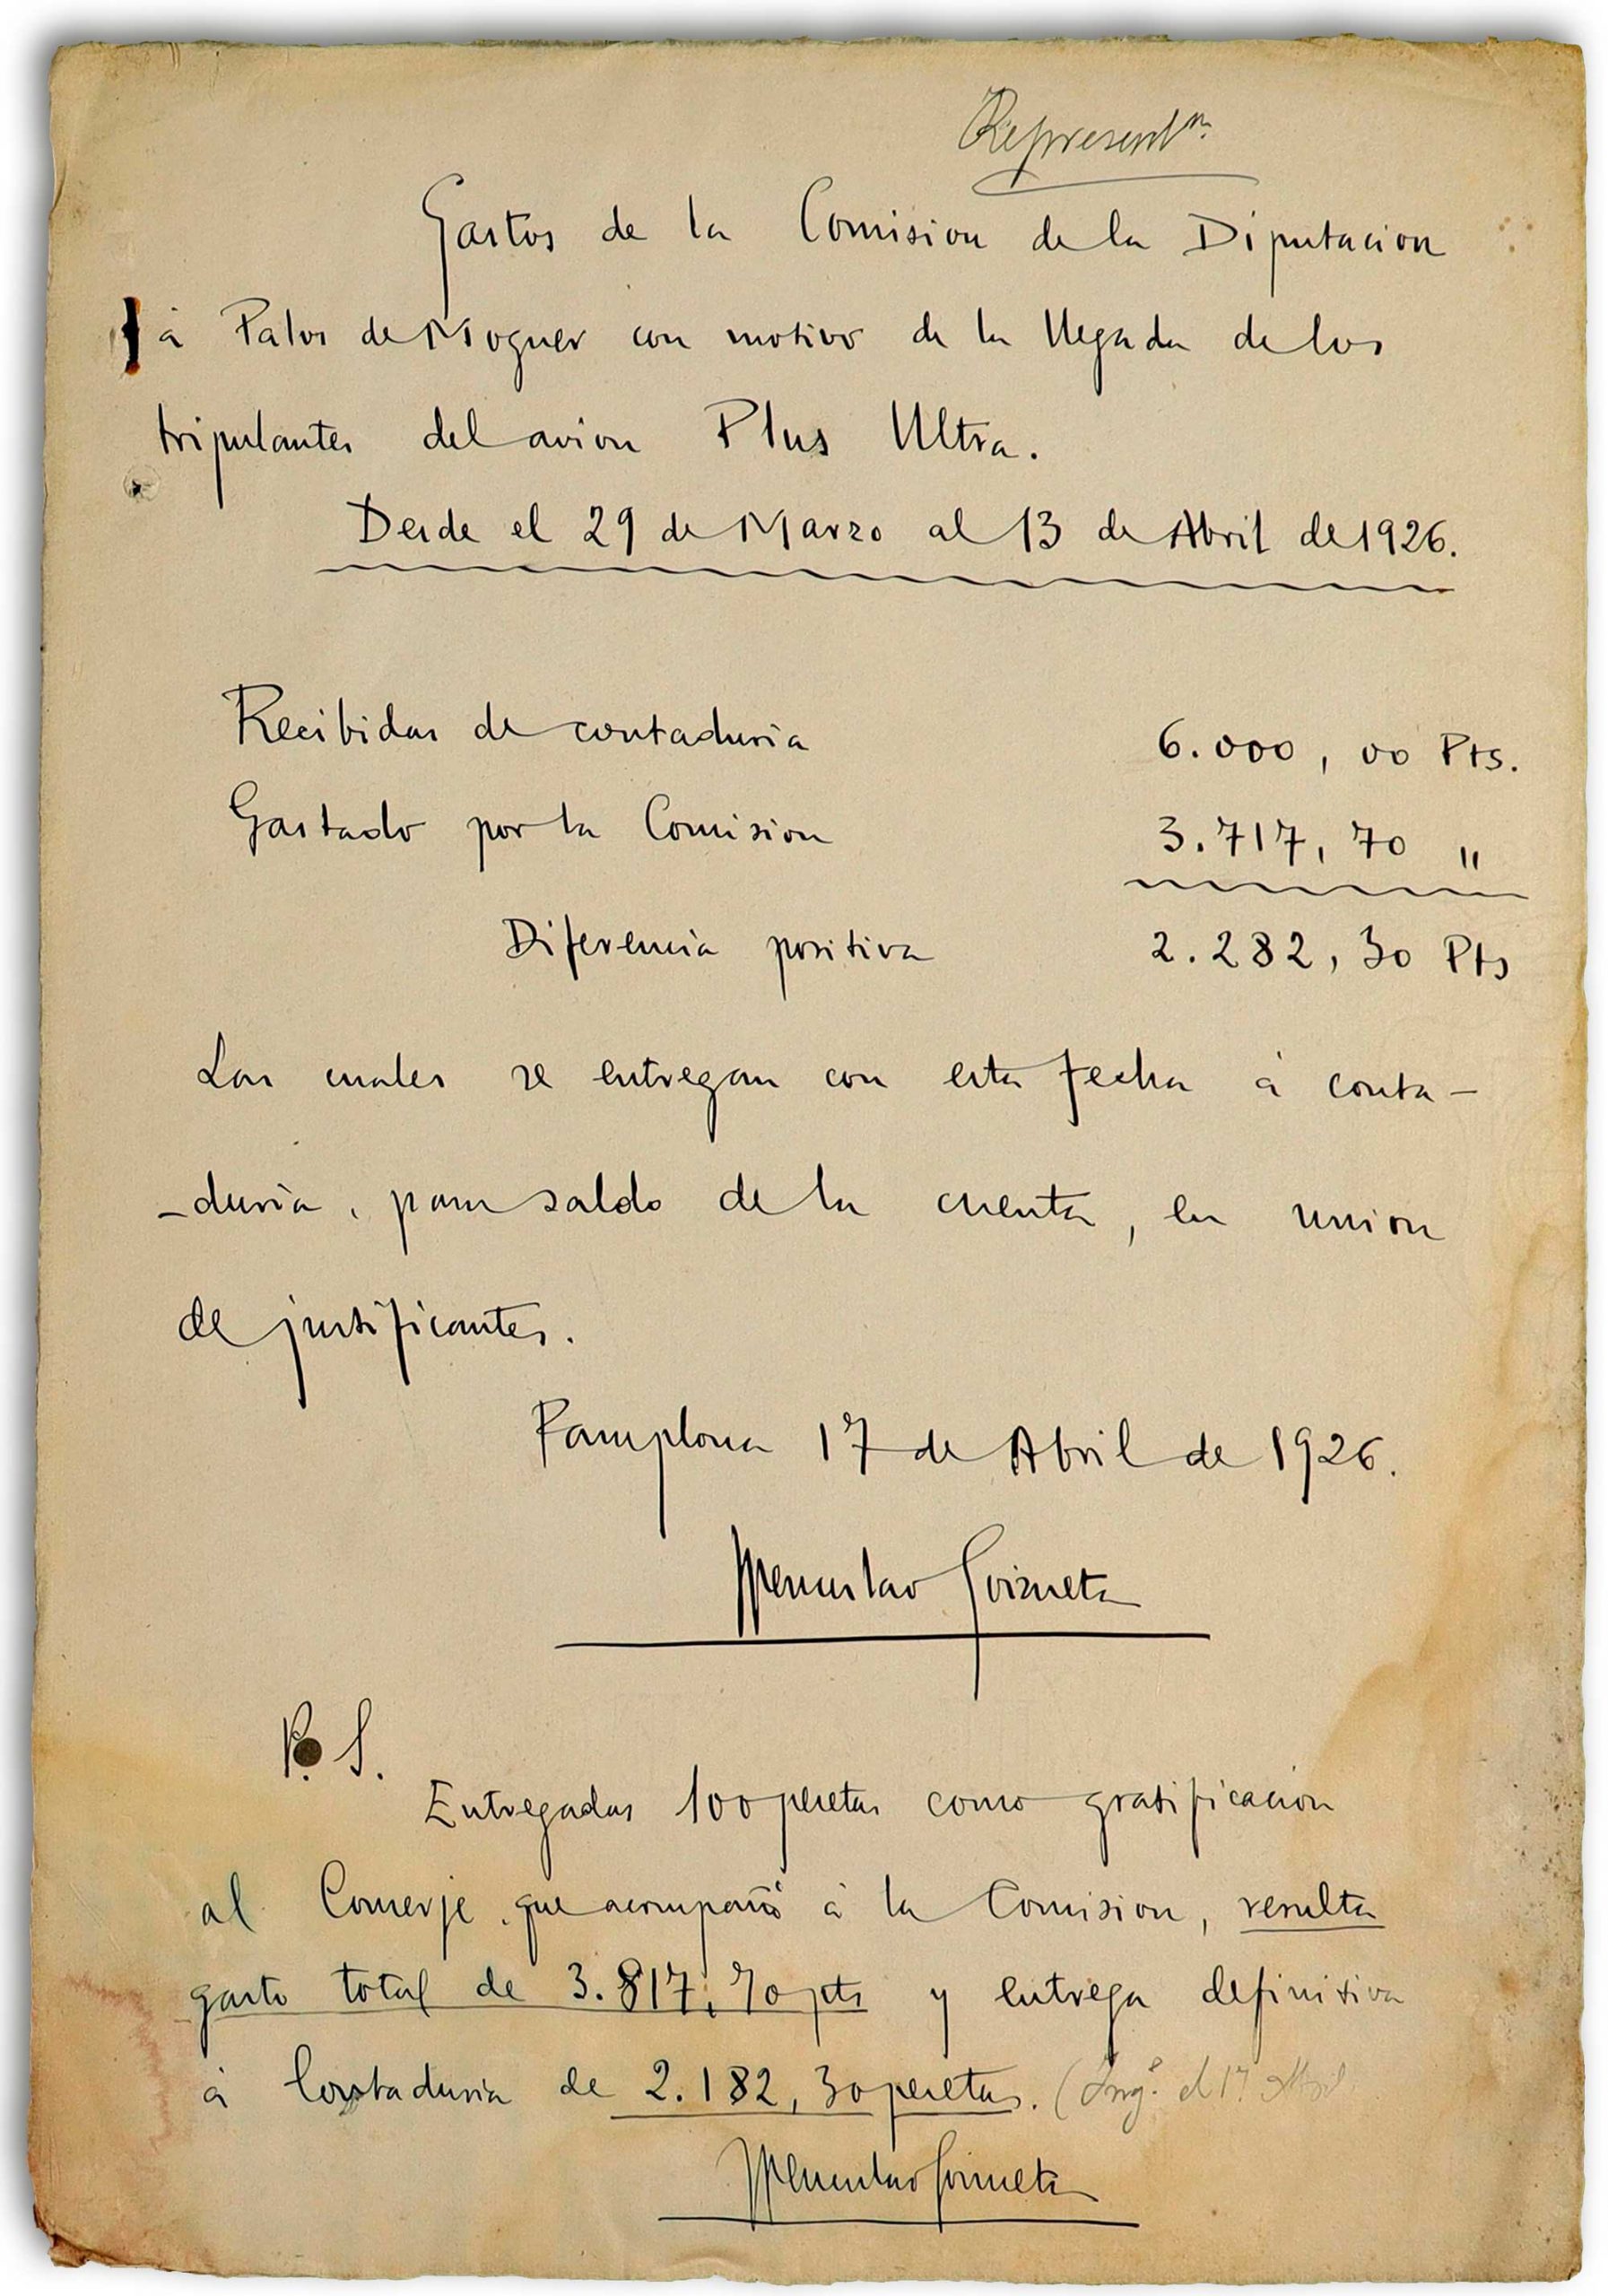 Represent^n.
Gastos de la Comision de la Diputacion
á Palos de Moguer con motivo de la llegada de los
tripulantes del avion Plus Ultra.
Desde el 29 de Marzo al 13 de Abril de 1926.
Recibidas de contaduria 6.000,00 Pts.
Gastado por la Comision 3.717,70 "
Diferencia positiva 2.282,30 Pts
Las cuales se entregan con esta fecha á conta-
-duria, para saldo de la cuenta, en union
de justificantes.
Pamplona 17 de Abril de 1926.
Wenceslao Goizueta
P. S.
Entregadas 100 pesetas como gratificacion
al Conserje que acompañó á la Comision, resulta
gasto total de 3.817,70 pts y entrega definitiva
á Contaduria de 2.182,30 pesetas. (Ingº. el 17 Abril
Wenceslao Goizueta